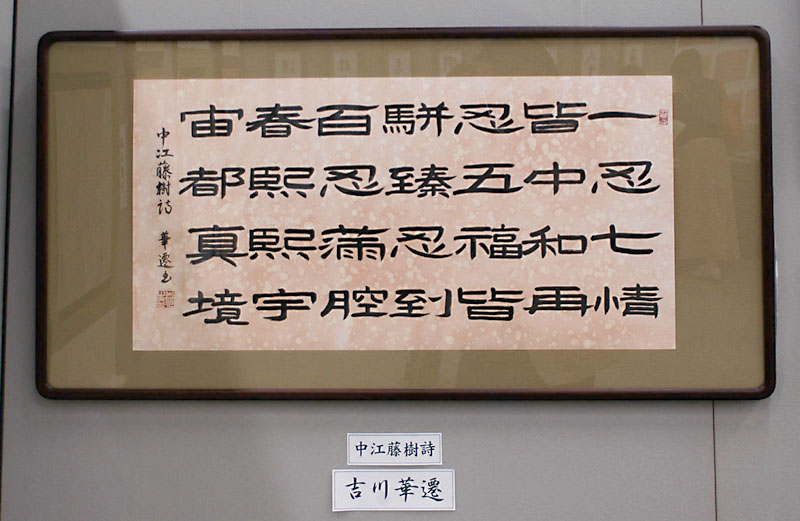 一忍七情
皆中和再
忍五福皆
駢臻忍到
百忍満腔
春熙熙宇
宙都真境
中江藤樹詩 華遷書
中江藤樹詩
吉川華遷